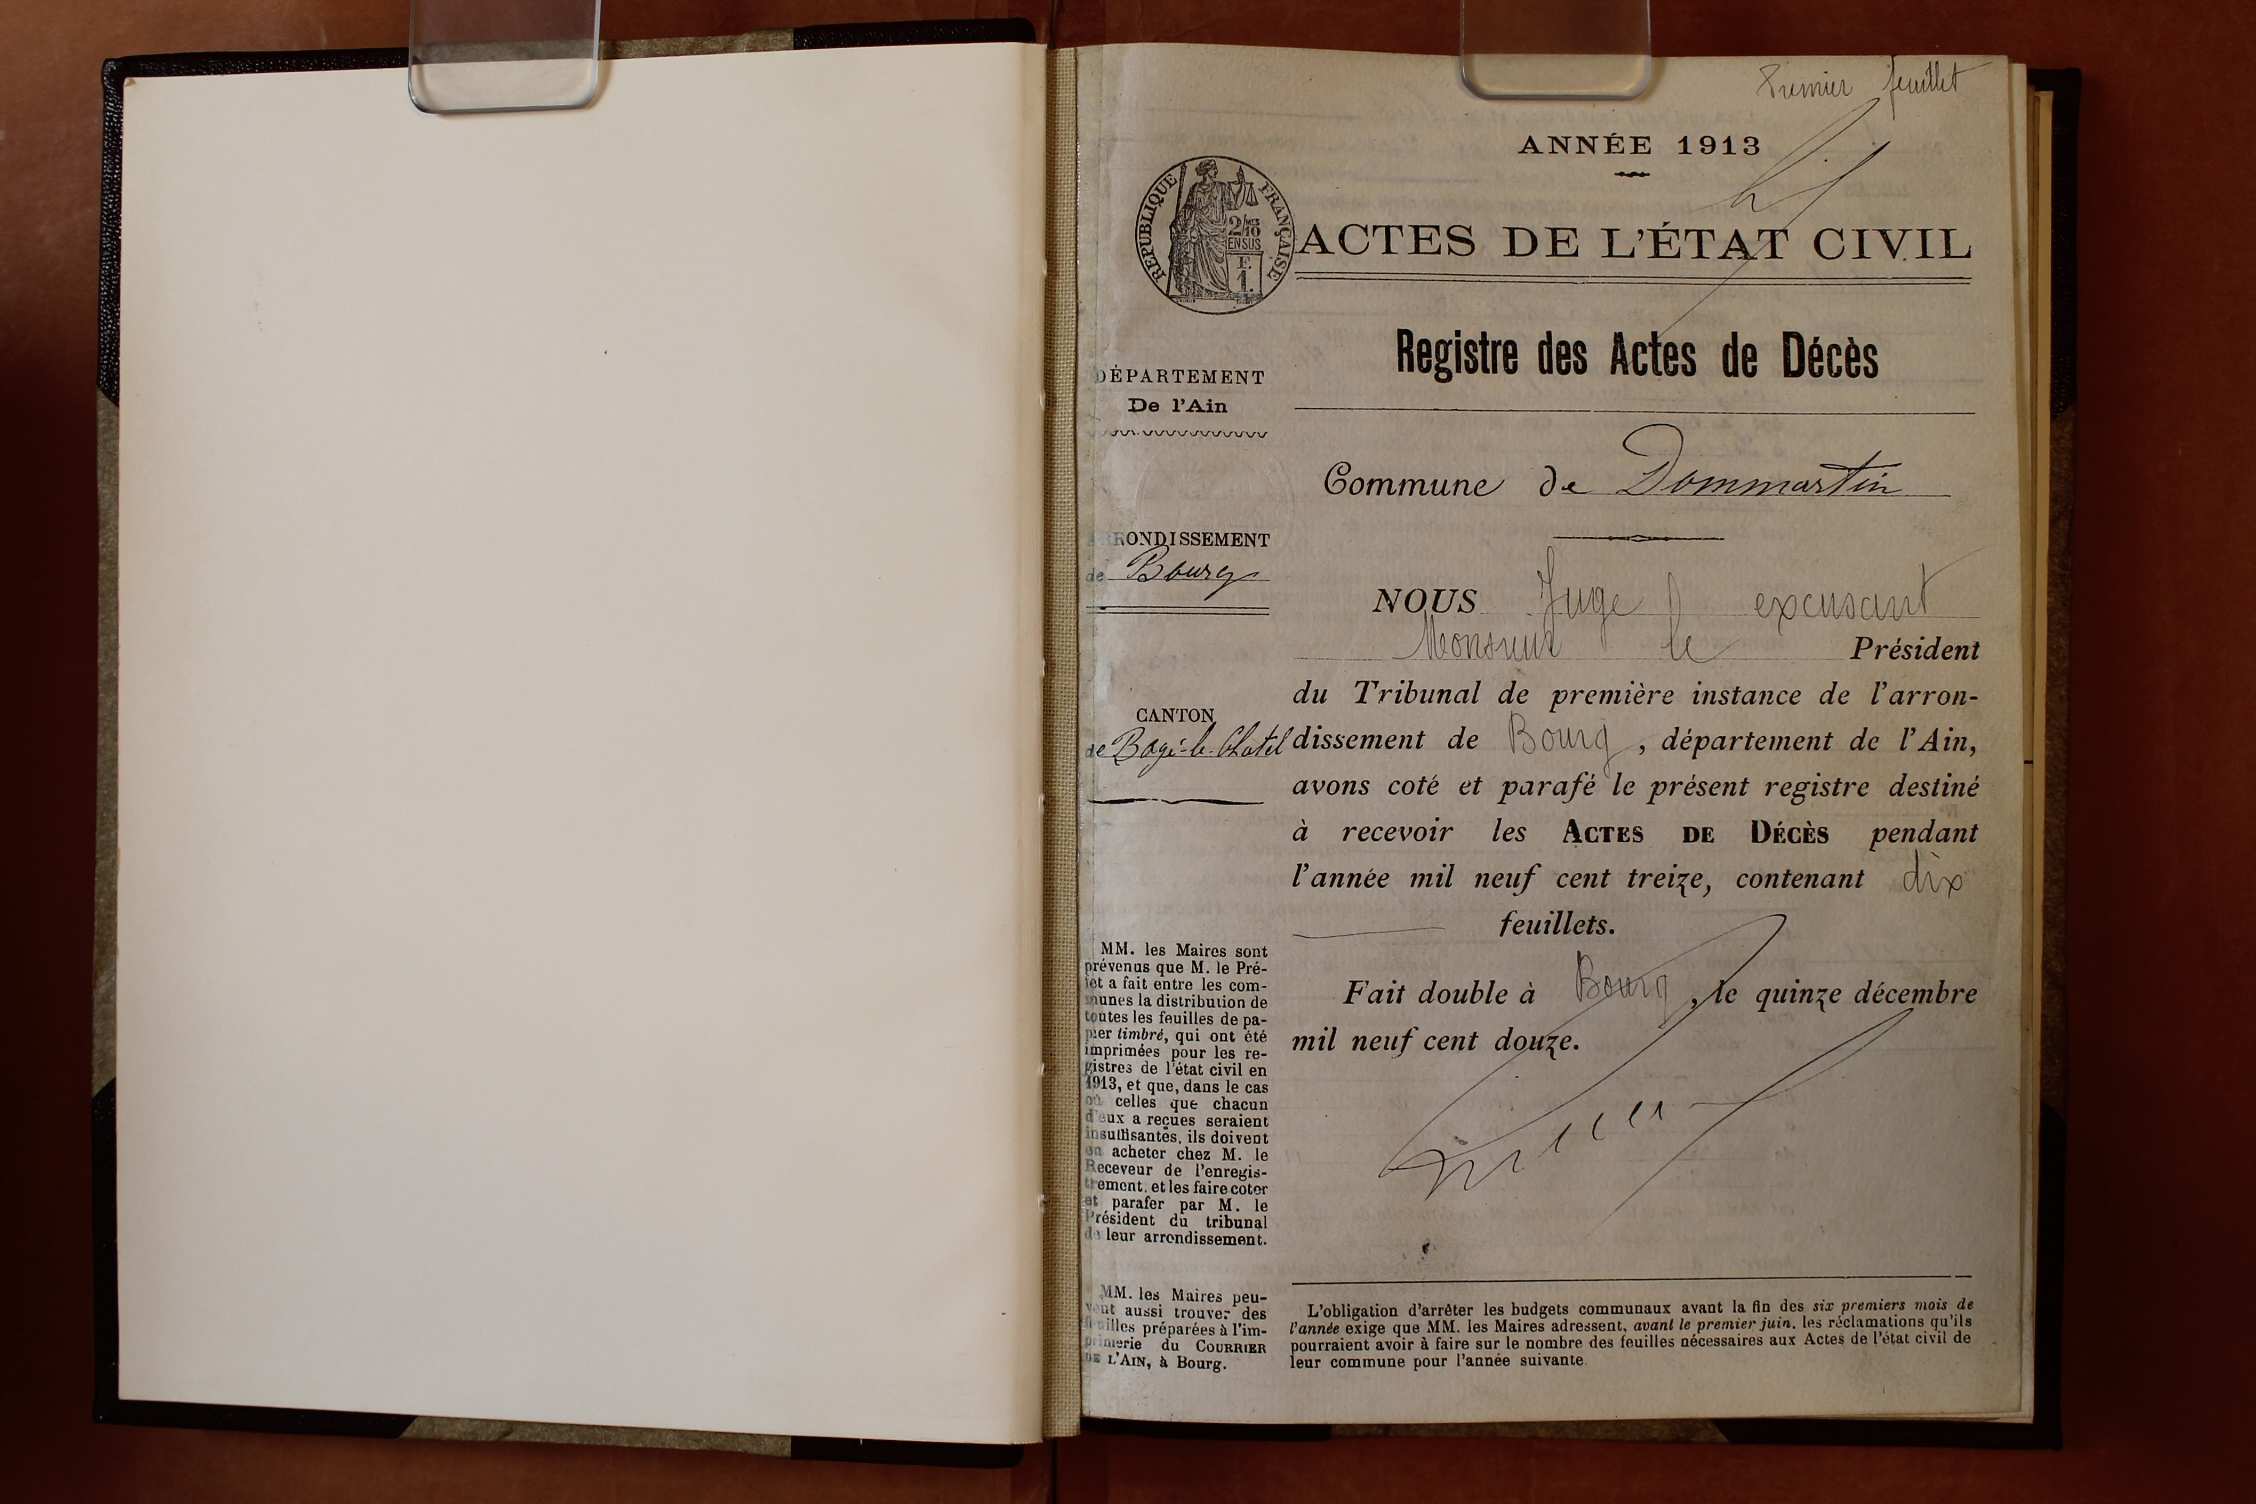 Premier feuillet
ANNÉE 1913
RÉPUBLIQUE FRANÇAISE
2/10
EN SUS
F.
1.
ACTES DE L'ÉTAT CIVIL
Registre des Actes de Décès
DÉPARTEMENT
De l'Ain
ARRONDISSEMENT
de Bourg
CANTON
de Bagé-le-Chatel
MM. les Maires sont
prévenus que M. le Pré-
fet a fait entre les com-
munes la distribution de
toutes les feuilles de pa-
pier timbré, qui ont été
imprimées pour les re-
gistres de l'état civil en
1913, et que, dans le cas
où celles que chacun
d'eux a reçues seraient
insuffisantes, ils doivent
en acheter chez M. le
Receveur de l'enregis-
trement, et les faire coter
et parafer par M. le
Président du tribunal
de leur arrondissement.
MM. les Maires peu-
vent aussi trouver des
feuilles préparées à l'im-
primerie du COURRIER
DE L'AIN, à Bourg.
Commune de Dommartin
NOUS Juge excusant
Monsieur le Président
du Tribunal de première instance de l'arron-
dissement de Bourg, département de l'Ain,
avons coté et parafé le présent registre destiné
à recevoir les ACTES DE DÉCÈS pendant
l'année mil neuf cent treize, contenant dix
feuillets.
Fait double à Bourg, le quinze décembre
mil neuf cent douze.
L'obligation d'arrêter les budgets communaux avant la fin des six premiers mois de
l'année exige que MM. les Maires adressent, avant le premier juin, les réclamations qu'ils
pourraient avoir à faire sur le nombre des feuilles nécessaires aux Actes de l'état civil de
leur commune pour l'année suivante.